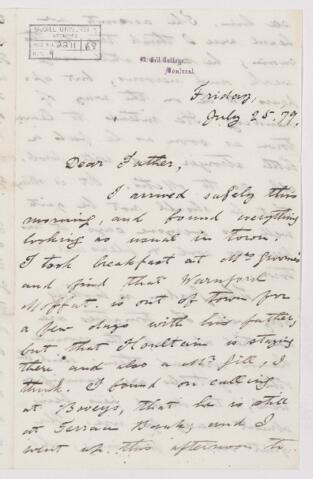 McGILL UNIVERSITY
ARCHIVES
ACC. NO. 2211/68
REF. 9
McGill College,
Montreal.
Friday,
July 25. 79.
Dear Father,
I arrived safely this
morning, and found everything
looking as usual in town.
I took breakfast at Mrs
and find that Warnford
Moffat is out of town for
a few days with his father,
but that Houltain is staying
there and also a Mr. Gill, I
think. I found on calling
at Boveys, that he is still
at Terrace Bank, and I
went up this afternoon to